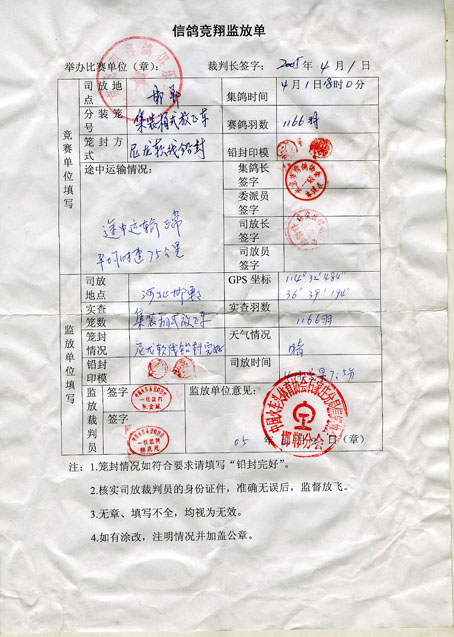 信鸽竞翔监放单
举办比赛单位(章): 裁判长签字: 2005年4月1日
竞赛单位填写
司放地点 邯郸 集鸽时间 4月1日18时0分
分装笼号 集装箱式放飞车 赛鸽羽数 1166羽
笼封方式 尼龙软线铅封 铅封印模
途中运输情况: 途中运输正常
平均时速75公里
集鸽长签字
委派员签字
司放长签字
司放员签字
监放单位填写
司放地点 河北邯郸 GPS坐标 114°32′484″
36°39′194″
实查笼数 集装箱式放飞车 实查羽数 1166羽
笼封情况 尼龙软线铅封完好 天气情况 晴
铅封印模 司放时间
监放裁判员 签字 监放单位意见:
签字
05年 日(章)
中国火车头体育协会石家庄分局信鸽
邯郸分会
注:1.笼封情况如符合要求请填写“铅封完好”。
2.核实司放裁判员的身份证件,准确无误后,监督放飞。
3.无章、填写不全,均视为无效。
4.如有涂改,注明情况并加盖公章。